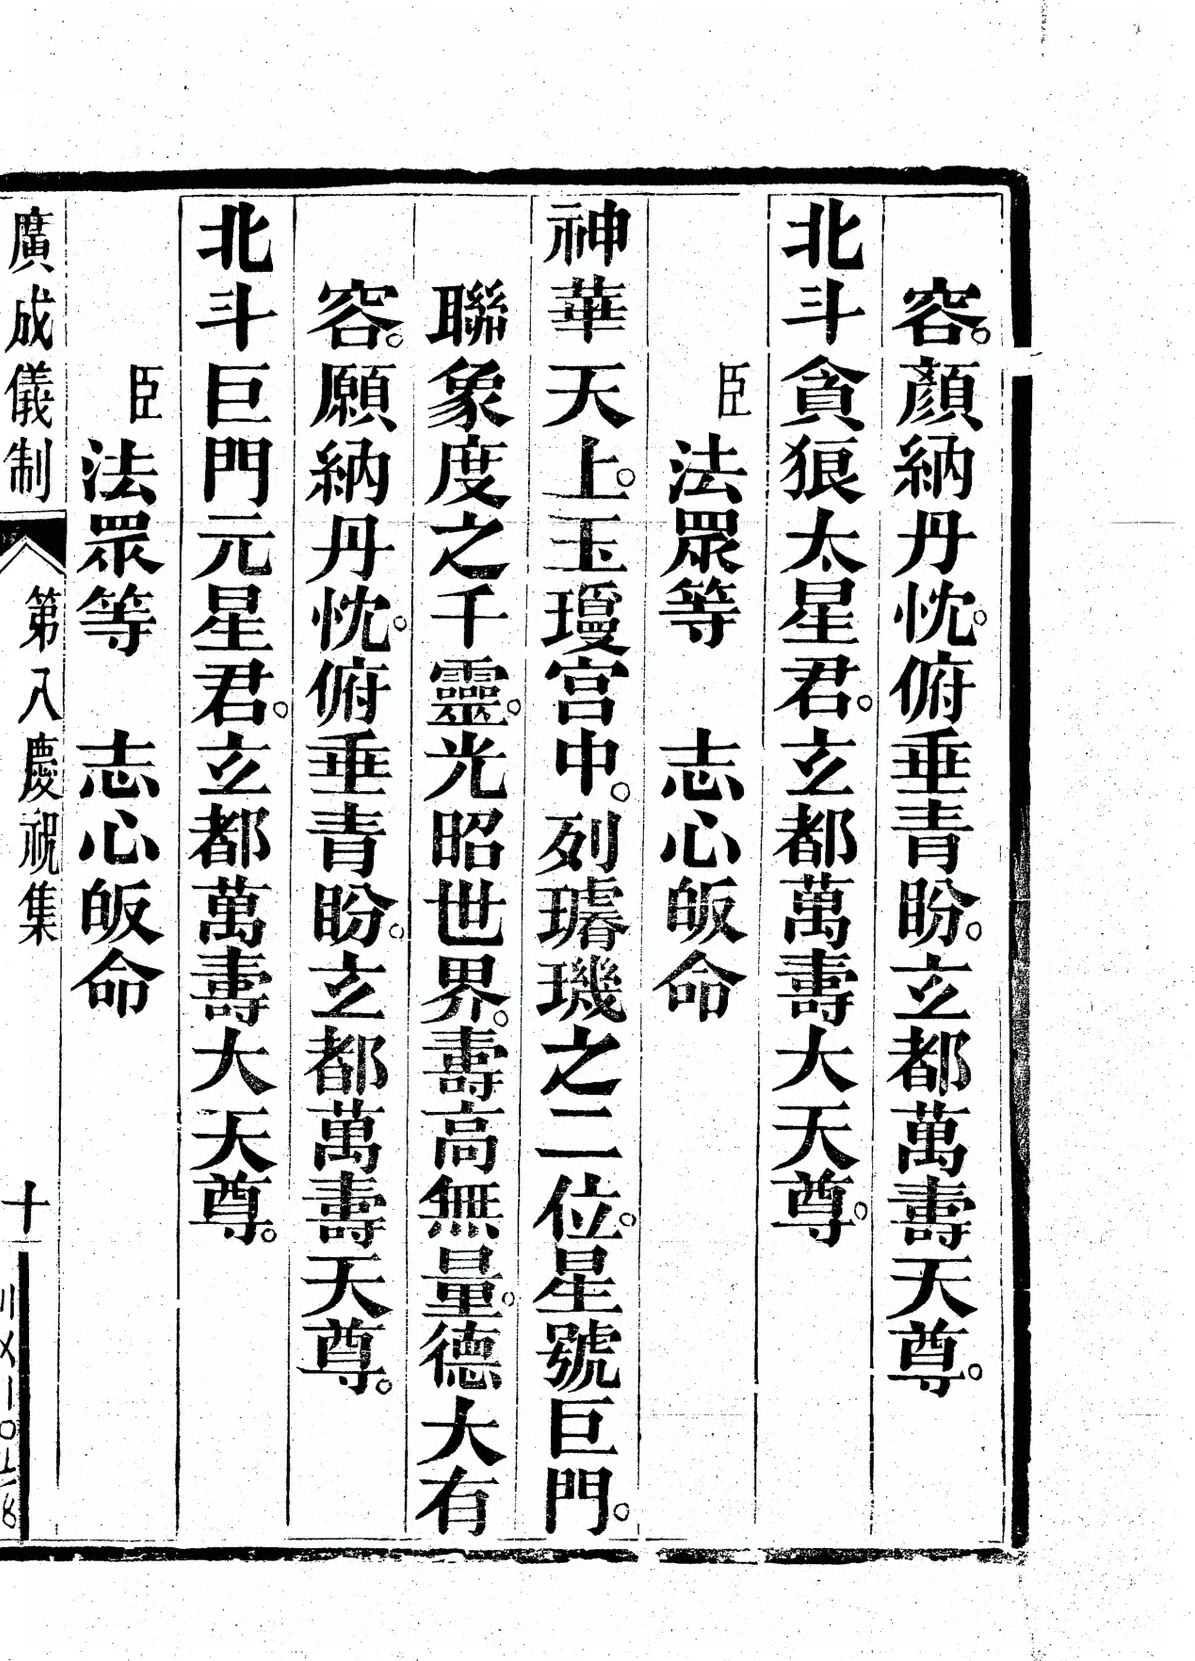 容。顏納丹忱。俯垂青盼。玄都萬壽天尊。
北斗貪狼太星君。玄都萬壽大天尊。
臣法眾等　志心皈命
神華天上。玉瓊宮中。列璿璣之二位。星號巨門。
聯象度之千靈。光昭世界。壽高無量。德大有
容。願納丹忱。俯垂青盼。玄都萬壽天尊。
北斗巨門元星君。玄都萬壽大天尊。
臣法眾等　志心皈命
廣成儀制　第八慶祝集　十